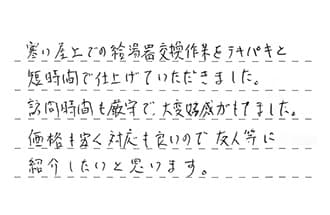 寒い屋上での給湯器交換作業をテキパキと
短時間で仕上げていただきました。
訪問時間も厳守で、大変好感がもてました。
価格も安く対応も良いので友人等に
紹介したいと思います。